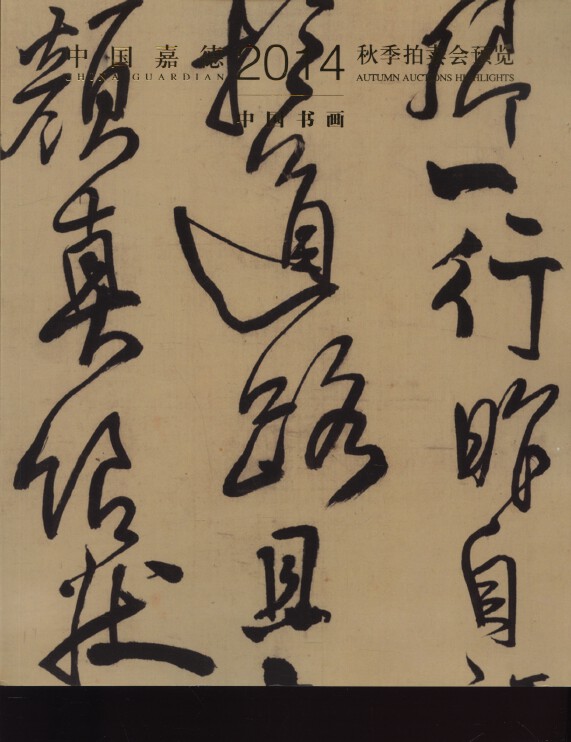 中国嘉德 2014 秋季拍卖会预览
CHINA GUARDIAN AUTUMN AUCTIONS HIGHLIGHTS
中国书画
卿一行昨自
道路且
顏真
狀